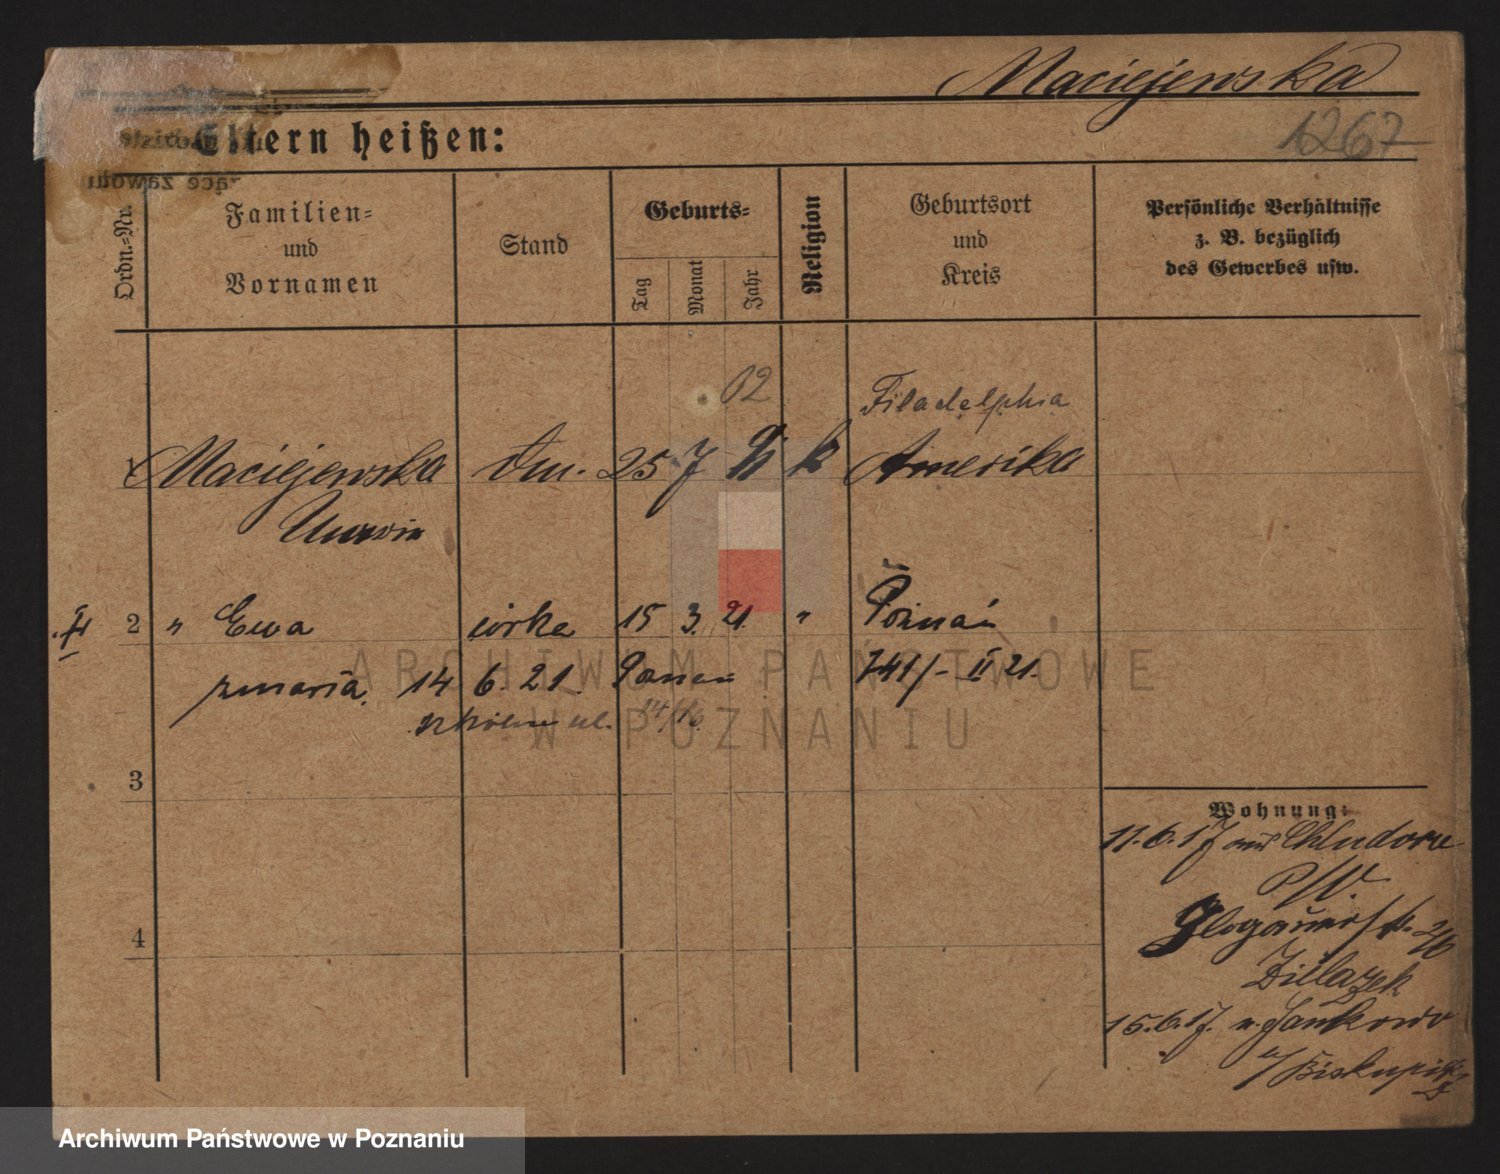 Maciejewska
1267
Eltern heißen:
Ordn.=Nr.
Familien=
und
Vornamen
Stand
Geburts=
Tag
Monat
Jahr
Religion
Geburtsort
und
Kreis
Persönliche Verhältnisse
z. B. bezüglich
des Gewerbes usw.
02
Filadelphia
1 Maciejewska 25 7 k Amerika
2 " Ewa córka 15 3. 21. " Poznań
14 6. 21. 741/- II 21.
ul. 14/16
3
4
Wohnung:
11.6.17 aus Chludowo
P/W.
Glogauerstr.
15.6.17. n. Jankowo
ARCHIWUM PAŃSTWOWE
W POZNANIU
Archiwum Państwowe w Poznaniu